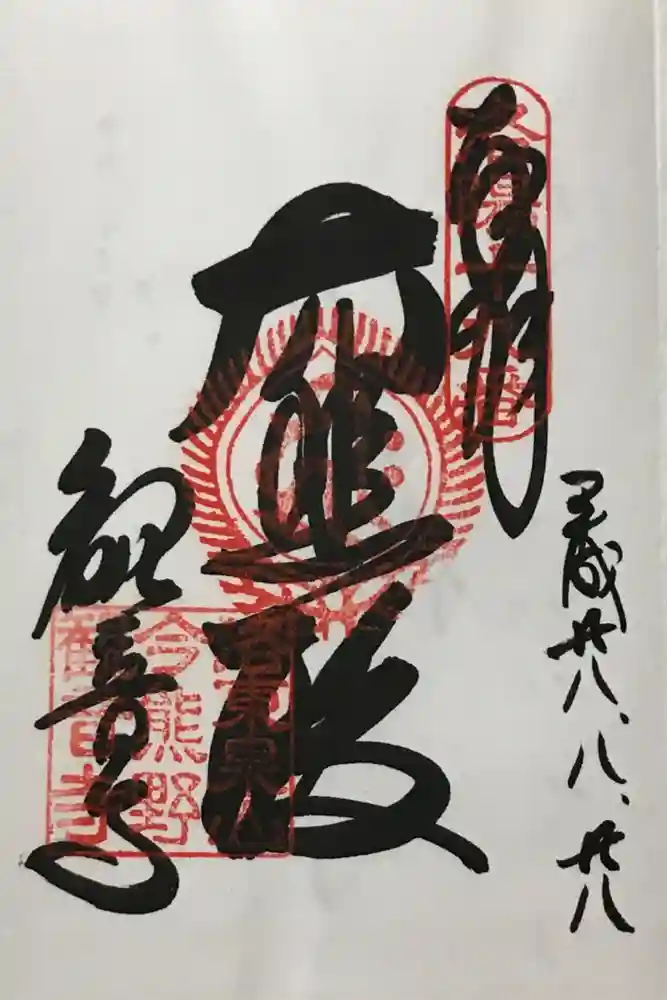 平成廿八、八、廿八
奉拝
西國十五番
大悲殿
観音寺
洛東泉山
今熊野
觀音寺